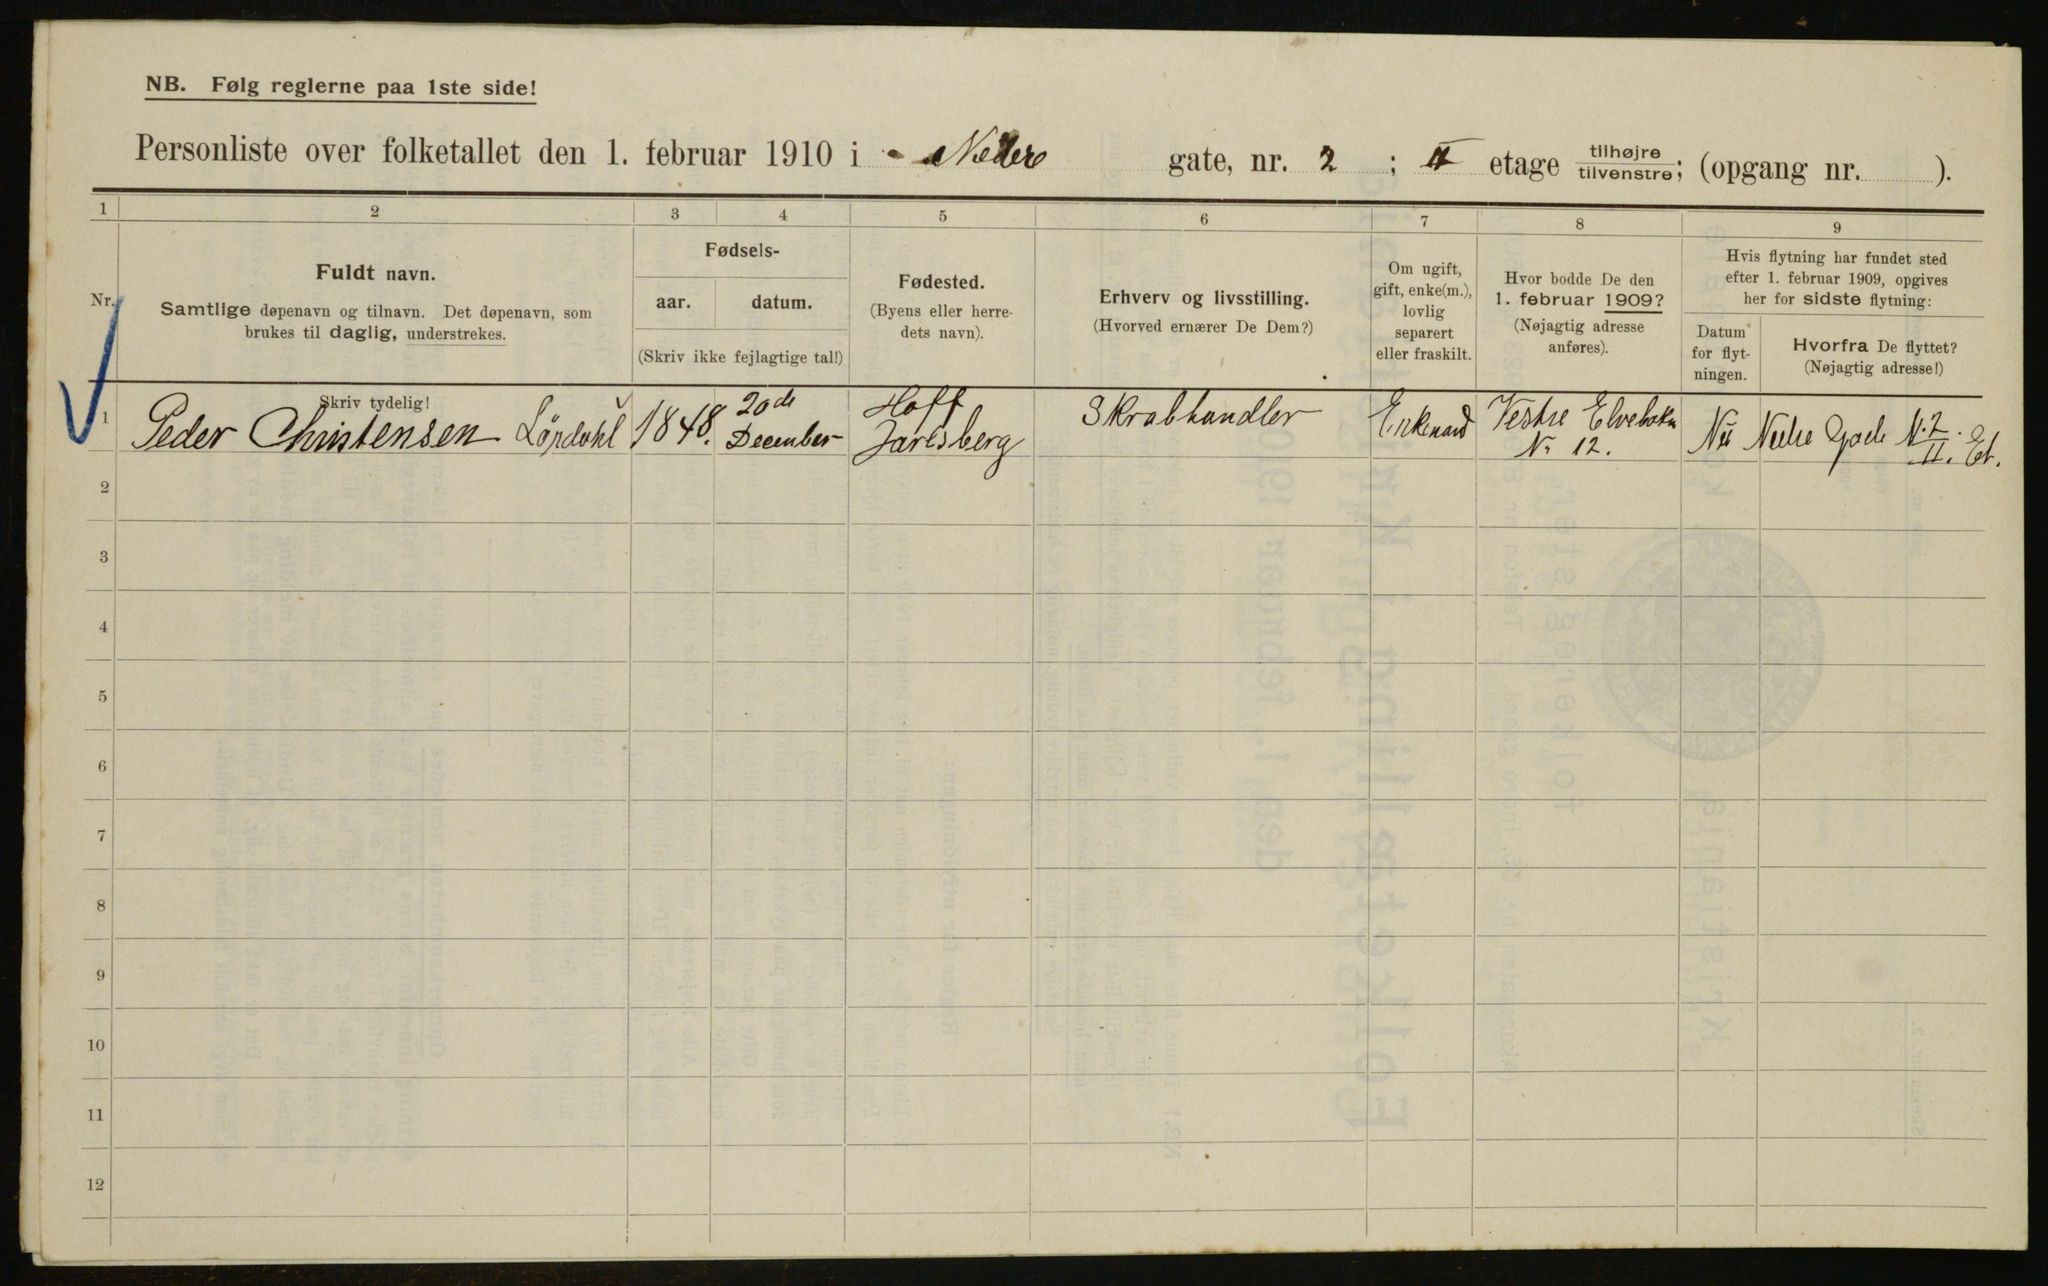 NB. Følg reglerne paa 1ste side!
Personliste over folketallet den 1. februar 1910 i Nedre gate, nr. 2 ; II etage tilhøjre/tilvenstre; (opgang nr. ).
1 2 3 4 5 6 7 8 9
Nr.
Fuldt navn.
Samtlige døpenavn og tilnavn. Det døpenavn, som
brukes til daglig, understrekes.
Skriv tydelig!
Fødsels-
aar. datum.
(Skriv ikke fejlagtige tal!)
Fødested.
(Byens eller herre-
dets navn).
Erhverv og livsstilling.
(Hvorved ernærer De Dem?)
Om ugift,
gift, enke(m.),
lovlig
separert
eller fraskilt.
Hvor bodde De den
1. februar 1909?
(Nøjagtig adresse
anføres).
Hvis flytning har fundet sted
efter 1. februar 1909, opgives
her for sidste flytning:
Datum
for flyt-
ningen.
Hvorfra De flyttet?
(Nøjagtig adresse!)
1 Peder Christensen 1848. 20de December Hoff Jarlsberg Skrabhandler Enkemand Vestre Elvebakn No 12. Nu Nedre Gade N. 2 II. Et.
2
3
4
5
6
7
8
9
10
11
12